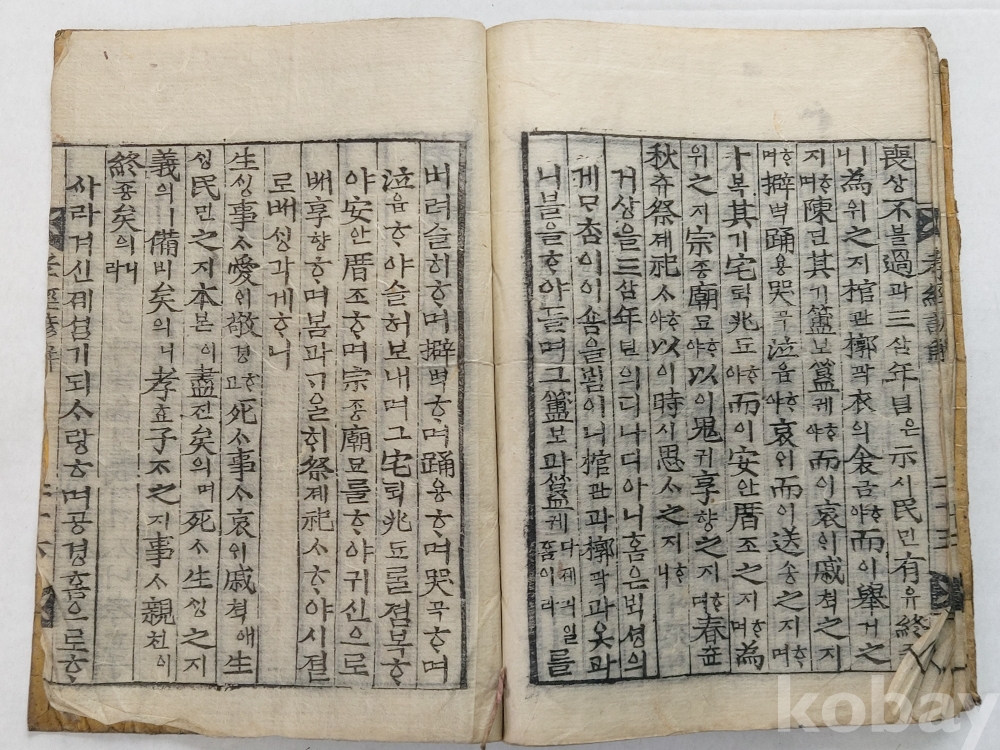 喪상不블過과三삼年년은示시民민有유終죵
ㅣ니爲위之지棺관槨곽衣의衾금ᄒᆞ야而이擧거之
지ᄒᆞ며陳딘其기簠보簋궤ᄒᆞ야而이哀ᄋᆡ慼쳑之지
ᄒᆞ며擗벽踊용哭곡泣읍ᄒᆞ야哀ᄋᆡ而이送송之지ᄒᆞ며
卜복其기宅ᄐᆡᆨ兆됴ᄒᆞ야而이安안厝조之지ᄒᆞ며爲
위之지宗종廟묘ᄒᆞ야以이鬼귀享향之지ᄒᆞ며春츈
秋츄祭졔祀ᄉᆞᄒᆞ야以이時시思ᄉᆞ之지ᄒᆞ니
거상을三삼年년의디나디아니홈은ᄇᆡᆨ셩의
게ᄆᆞᄎᆞᆷ이이숌을뵘이니棺관과槨곽과옷과
니블을ᄒᆞ야들며그簠보과簋궤다졔긔일홈이라를
孝經諺解
二十五
버려슬허ᄒᆞ며擗벽ᄒᆞ며踊용ᄒᆞ며哭곡ᄒᆞ며
泣읍ᄒᆞ야슬허보내며그宅ᄐᆡᆨ兆됴ᄅᆞᆯ점복ᄒᆞ
야安안厝조ᄒᆞ며宗종廟묘를ᄒᆞ야귀신으로
ᄡᅥ享향ᄒᆞ며봄과ᄀᆞ을ᄒᆡ祭졔祀ᄉᆞᄒᆞ야시졀
로ᄡᅥᄉᆡᆼ각게ᄒᆞ니
生ᄉᆡᆼ事ᄉᆞ愛ᄋᆡ敬경ᄒᆞ고死ᄉᆞ事ᄉᆞ哀ᄋᆡ慼쳑애生
ᄉᆡᆼ民민之지本본이盡진矣의며死ᄉᆞ生ᄉᆡᆼ之지
義의ㅣ備비矣의니孝효子ᄌᆞ之지事ᄉᆞ親친이
終죵矣의니라
사라겨신제셤기되ᄉᆞ랑ᄒᆞ며공경홈으로ᄒᆞ
孝經諺解
二十六
kobay